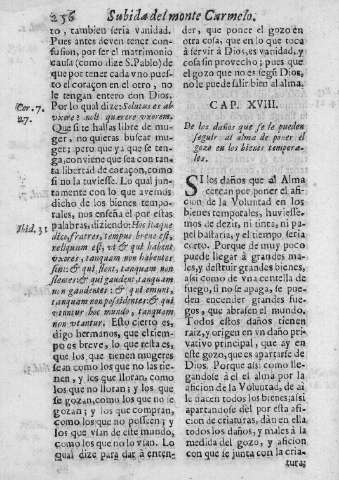 256 Subida del monte Carmelo.
to, tambien seria vanidad.
Pues antes deven tener con-
fusion, por ser el matrimonio
causa (como dize S. Pablo) de
que por tener cada vno pues-
to el coraçon en el otro, no
le tengan entero con Dios.
Cor. 7.
27.
Por lo qual dize: Solutus es ab
vxore? noli quærere vxorem.
Que si te hallas libre de mu-
ger, no quieras buscar mu-
ger; pero que ya que se ten-
ga, conviene que sea con tan-
ta libertad de coraçon, como
si no la tuviesse. Lo qual jun-
tamente con lo que avemos
dicho de los bienes tempo-
rales, nos enseña el por estas
Ibid. 31
palabras, diziendo: Hoc itaque
dico, fratres, tempus breve est,
reliquum est, vt & qui habent
vxores, tanquam non habentes
sint: & qui flent, tanquam non
flentes: & qui gaudent, tanquam
non gaudentes: & qui emunt,
tanquam non possidentes: & qui
vtuntur hoc mundo, tanquam
non vtantur. Esto cierto es,
digo hermanos, que el tiem-
po es breve, lo que resta es,
que los que tienen mugeres
sean como los que no las tie-
nen, y los que lloran, como
los que no lloran; y los que
se gozan, como los que no le
gozan; y los que compran,
como los que no posseen; y
los que vsan de este mundo,
como los que no lo vsan. Lo
qual dize para dar à enten-
der, que poner el gozo en
otra cosa, que en lo que toca
à servir à Dios, es vanidad, y
cosa sin provecho; pues que
el gozo que no es segū Dios,
no le puede salir bien al alma.
CAP. XVIII.
De los daños que se le pueden
seguir al alma de poner el
gozo en los bienes tempora-
les.
SI los daños que al Alma
cercan por poner el afi-
cion de la Voluntad en los
bienes temporales, huviesse-
mos de dezir, ni tinta, ni pa-
pel bastaria, y el tiempo seria
corto. Porque de muy poco
puede llegar à grandes ma-
les, y destruir grandes bienes,
assi como de vna centella de
fuego, si no se apaga, se pue-
den encender grandes fue-
gos, que abrasen el mundo.
Todos estos daños tienen
raiz, y origen en vn daño pri-
vativo principal, que ay en
este gozo, que es apartarse de
Dios. Porque assi como lle-
gandose à èl el alma por la
aficion de la Voluntad, de ai
le nacen todos los bienes; assi
apartandose del por esta afi-
cion de criaturas, dàn en ella
todos los daños, y males à la
medida del gozo, y aficion
con que se junta con la cria-
turas;